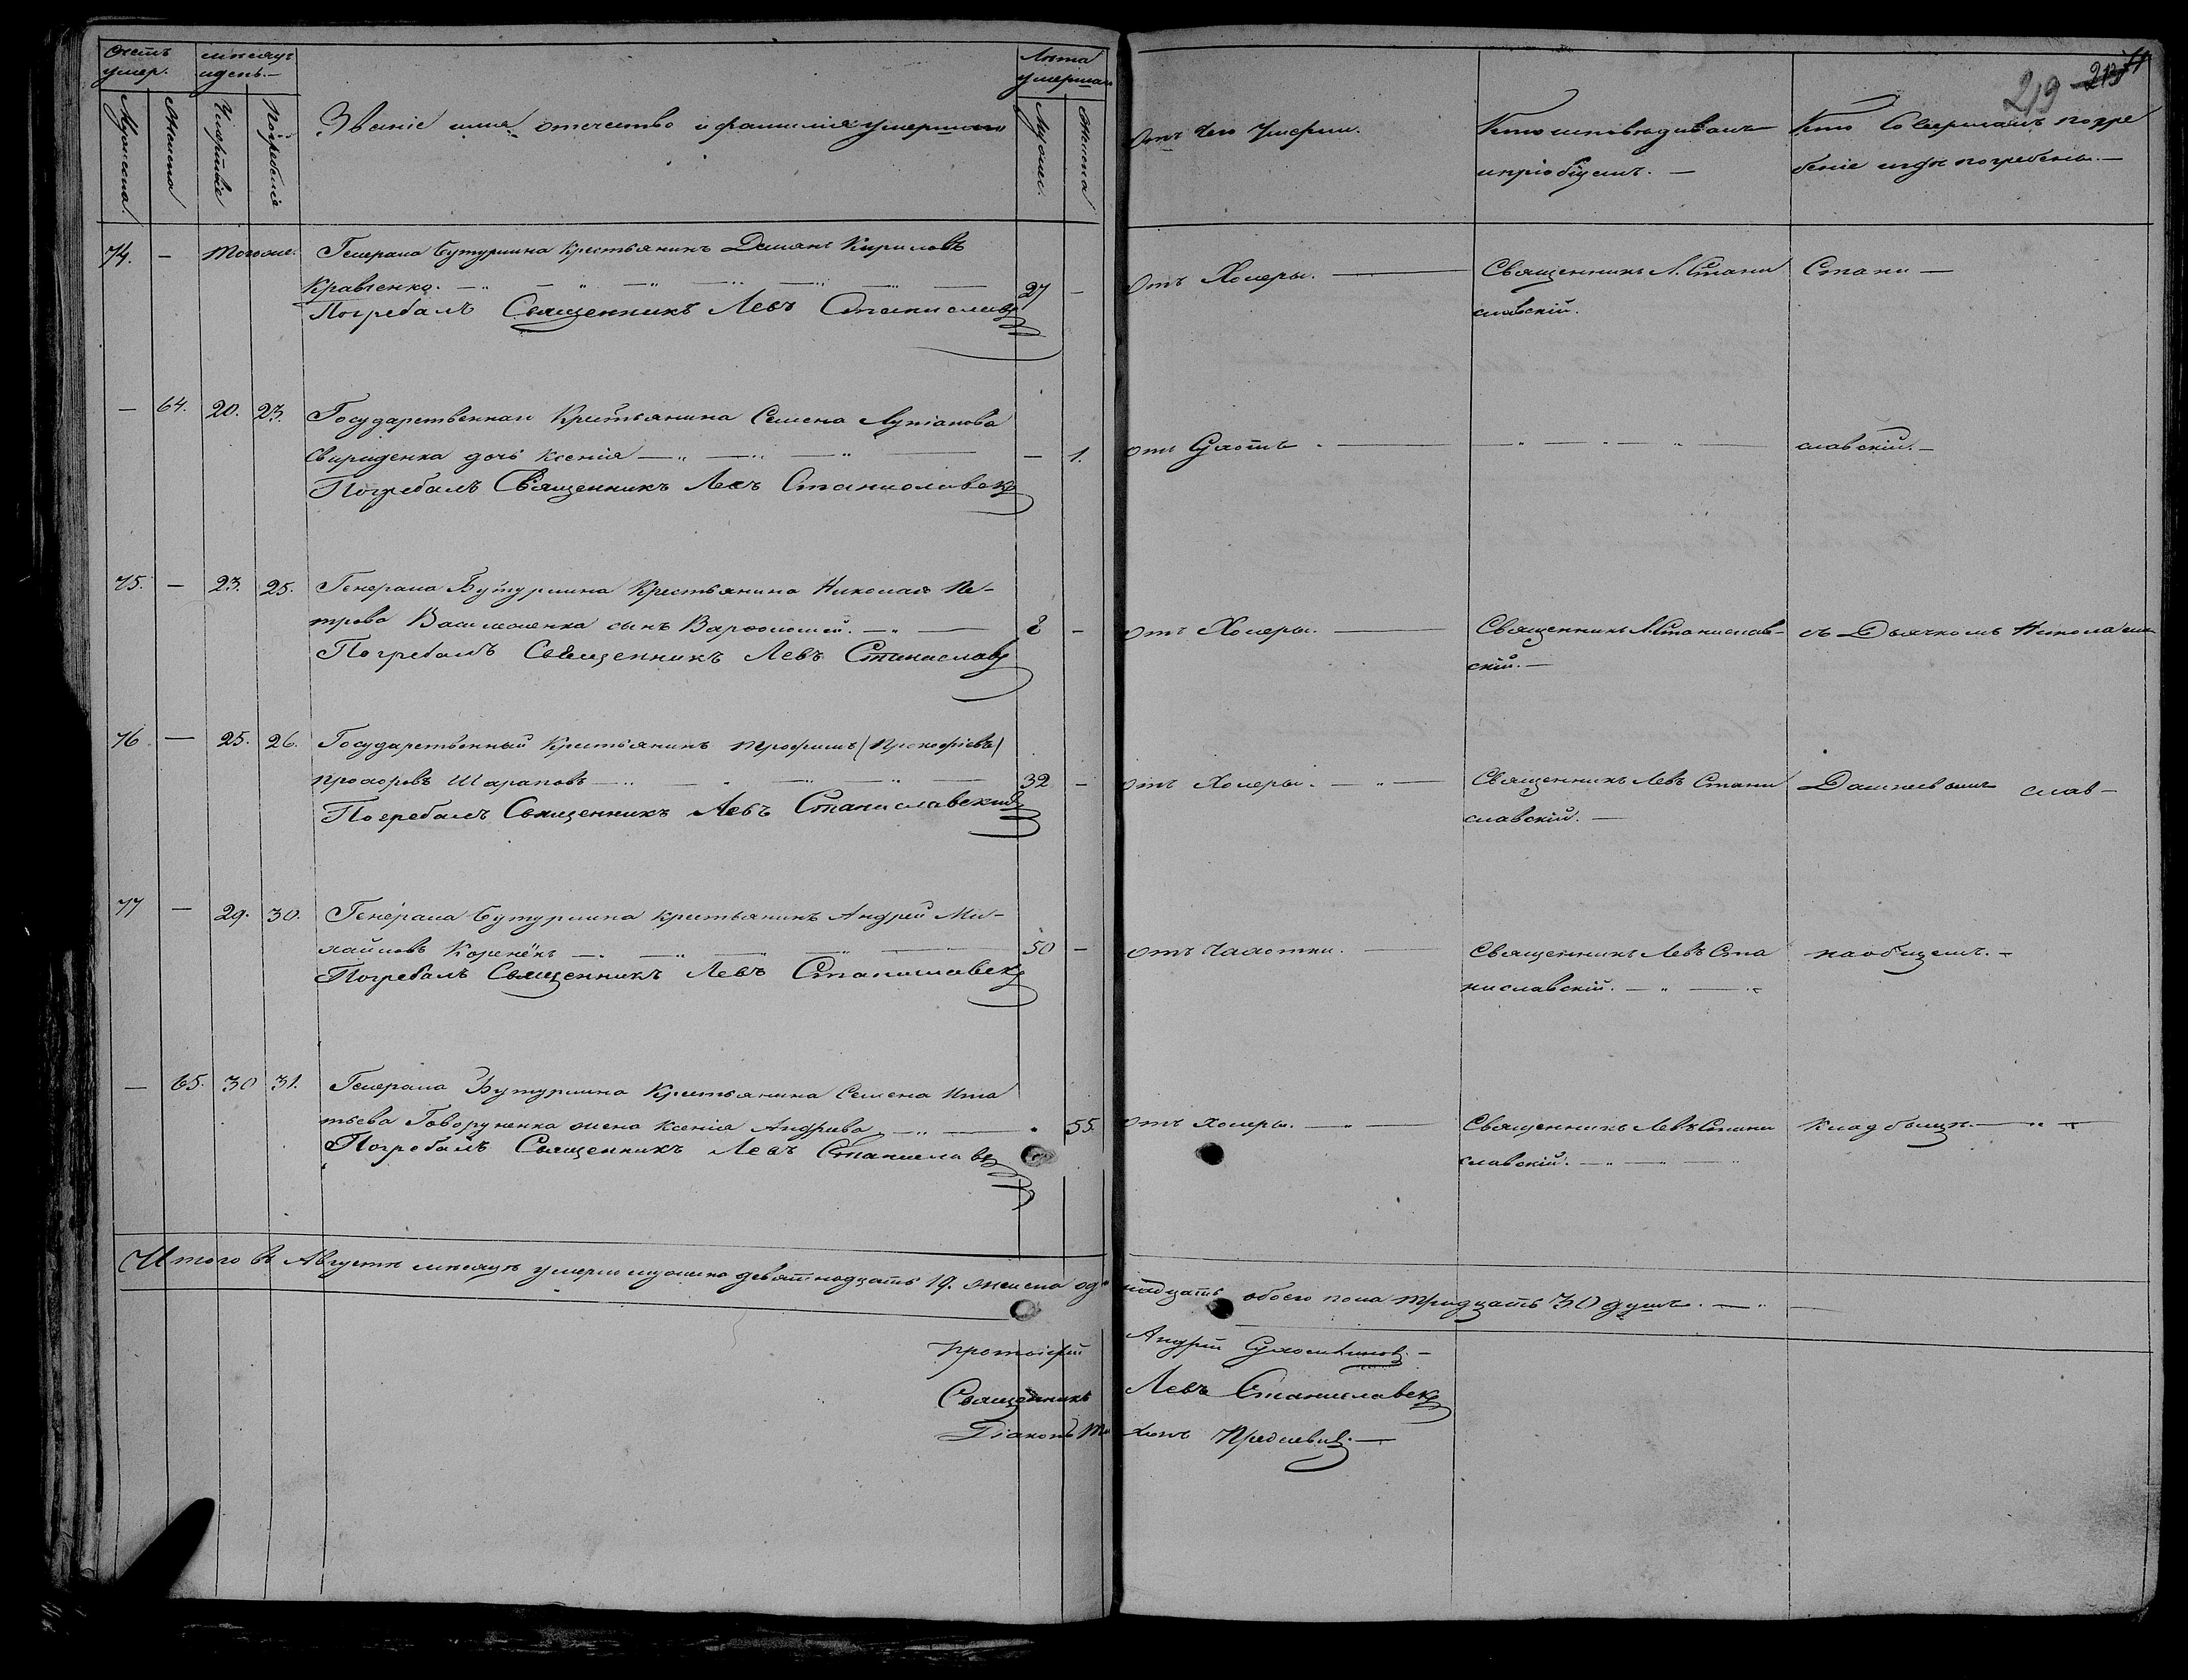 Счетъ умер.
Мѣсяцъ и день.
Лѣта умершаго
Мужеска.
Женска
Умертвіе
Погребеніе
Званіе имя, отечество и фамилія умершаго
Мужес.
Женска
219 213
Отъ чего Умерли.
Кто исповѣдывалъ
и пріобщилъ. —
Кто Совершалъ погре
беніе и гдѣ погребены. —
74. — Тогоже. Генерала Бутурлина Крестьянинъ Демянъ Кириловъ
Кравченко. — 27 —
Погребалъ Священникъ Левъ Станиславс
отъ Холеры. —
Священникъ Л. Стани
славскій.
Стани —
— 64. 20. 23. Государственнаго Крестьянина Семена Лукіанова
Свириденка дочь Ксенія — — 1.
Погребалъ Священникъ Левъ Станиславск
отъ
славскій. —
75. — 23. 25. Генерала Бутурлина Крестьянина Николая Пе-
трова Василенка сынъ Варфоломей. — 2 —
Погребалъ Священникъ Левъ Станиславс
отъ Холеры. —
Священникъ Л. Станислав-
скій. —
съ Дьячкомъ Николаемъ
76 — 25. 26. Государственный Крестьянинъ Трофимъ (Прокофіевъ)
Прохоровъ Шараповъ — 32 —
Погребалъ Священникъ Левъ Станиславскій
отъ Холеры. —
Священникъ Левъ Стани
славскій. —
слав-
77 — 29. 30. Генерала Бутурлина Крестьянинъ Андрей Ми-
хайловъ Коренёкъ — 50 —
Погребалъ Священникъ Левъ Станиславск
отъ Чахотки. —
Священникъ Левъ Ста
ниславскій. —
на общемъ. —
— 65. 30 31. Генерала Бутурлина Крестьянина Семена Игна
тьева Говоруненка жена Ксенія Андрѣева — 55.
Погребалъ Священникъ Левъ Станиславс
отъ Холеры. —
Священникъ Левъ Стани
славскій. —
Кладбищѣ. —
Итого въ Августѣ мѣсяцѣ умерли мужеска девятнадцать 19. женска одинадцать обоего пола тридцать 30 душъ. —
Протоіерей Андрей
Священникъ Левъ Станиславск
Діаконъ Тихонъ